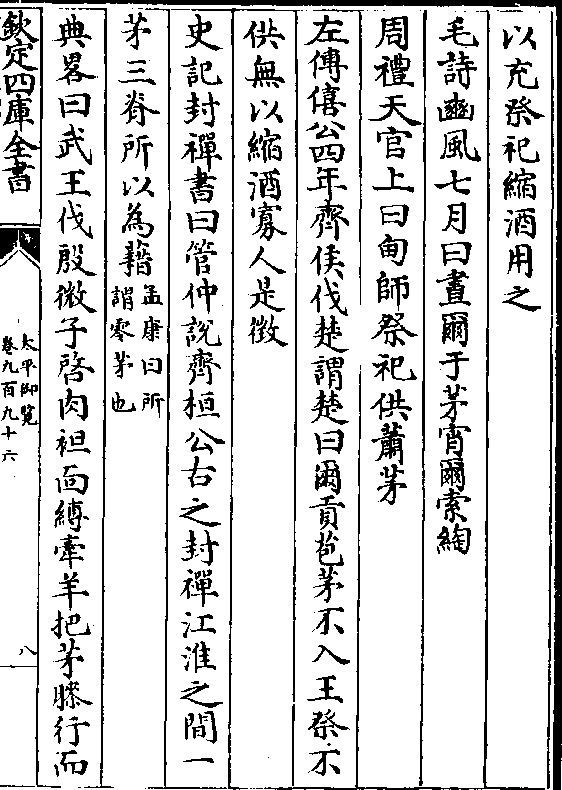 以充祭祀縮酒用之
毛詩豳風七月曰晝爾于茅宵爾索綯
周禮天官上曰甸師祭祀供蕭茅
左傳僖公四年齊侯伐楚謂楚曰爾貢苞茅不入王祭不
供無以縮酒寡人是徴
史記封禪書曰管仲説齊桓公古之封禪江淮之間一
茅三脊所以為藉孟康曰所謂零茅也
典畧曰武王伐殷微子啓肉袒面縛牽羊把茅膝行而
欽定四庫全書
太平御覽
卷九百九十六
八